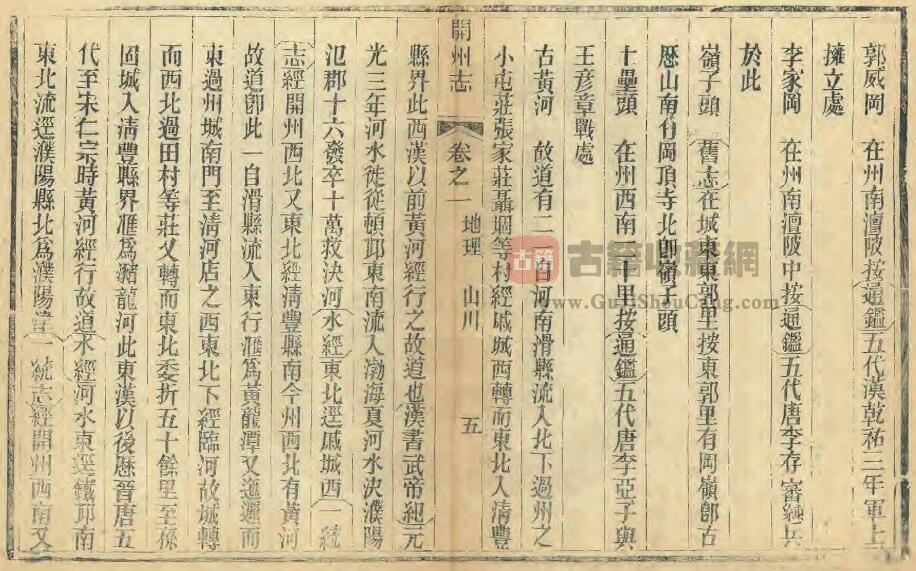 郭威岡　在州南澶陂按通鑑五代漢乾祐二年軍上
擁立處
李家岡　在州南澶陂中按通鑑五代唐李存審練兵
於此
嶺子頭　舊志在城東東郭里按東郭里有岡嶺卽古
歷山南有岡頂寺北卽嶺子頭
十壘頭　在州西南二十里按通鑑五代唐李亞子與
王彥章戰處
古黃河　故道有二一自河南滑縣流入北下過州之
小屯莊張家莊聶堌等村經戚城西轉而東北入清豐
開州志　卷之一　地理　山川　五
縣界此西漢以前黃河經行之故道也漢書武帝紀元
光三年河水徙從頓邱東南流入渤海夏河水決濮陽
氾郡十六發卒十萬救決河水經東北逕戚城西一統
志經開州西北又東北經清豐縣南今州西北有黃河
故道卽此一自滑縣流入東行滙爲黃龍潭又迤邐而
東過州城南門至清河店之西東北下經臨河故城轉
而西北過田村等莊又轉而東北委折五十餘里至
固城入清豐縣界滙爲豬龍河此東漢以後歷晉唐五
代至宋仁宗時黃河經行故道水經河水東逕鐵邱南
東北流逕濮陽縣北爲濮陽津一統志經開州西南又
古籍收藏網
www.GuJiShouCang.com